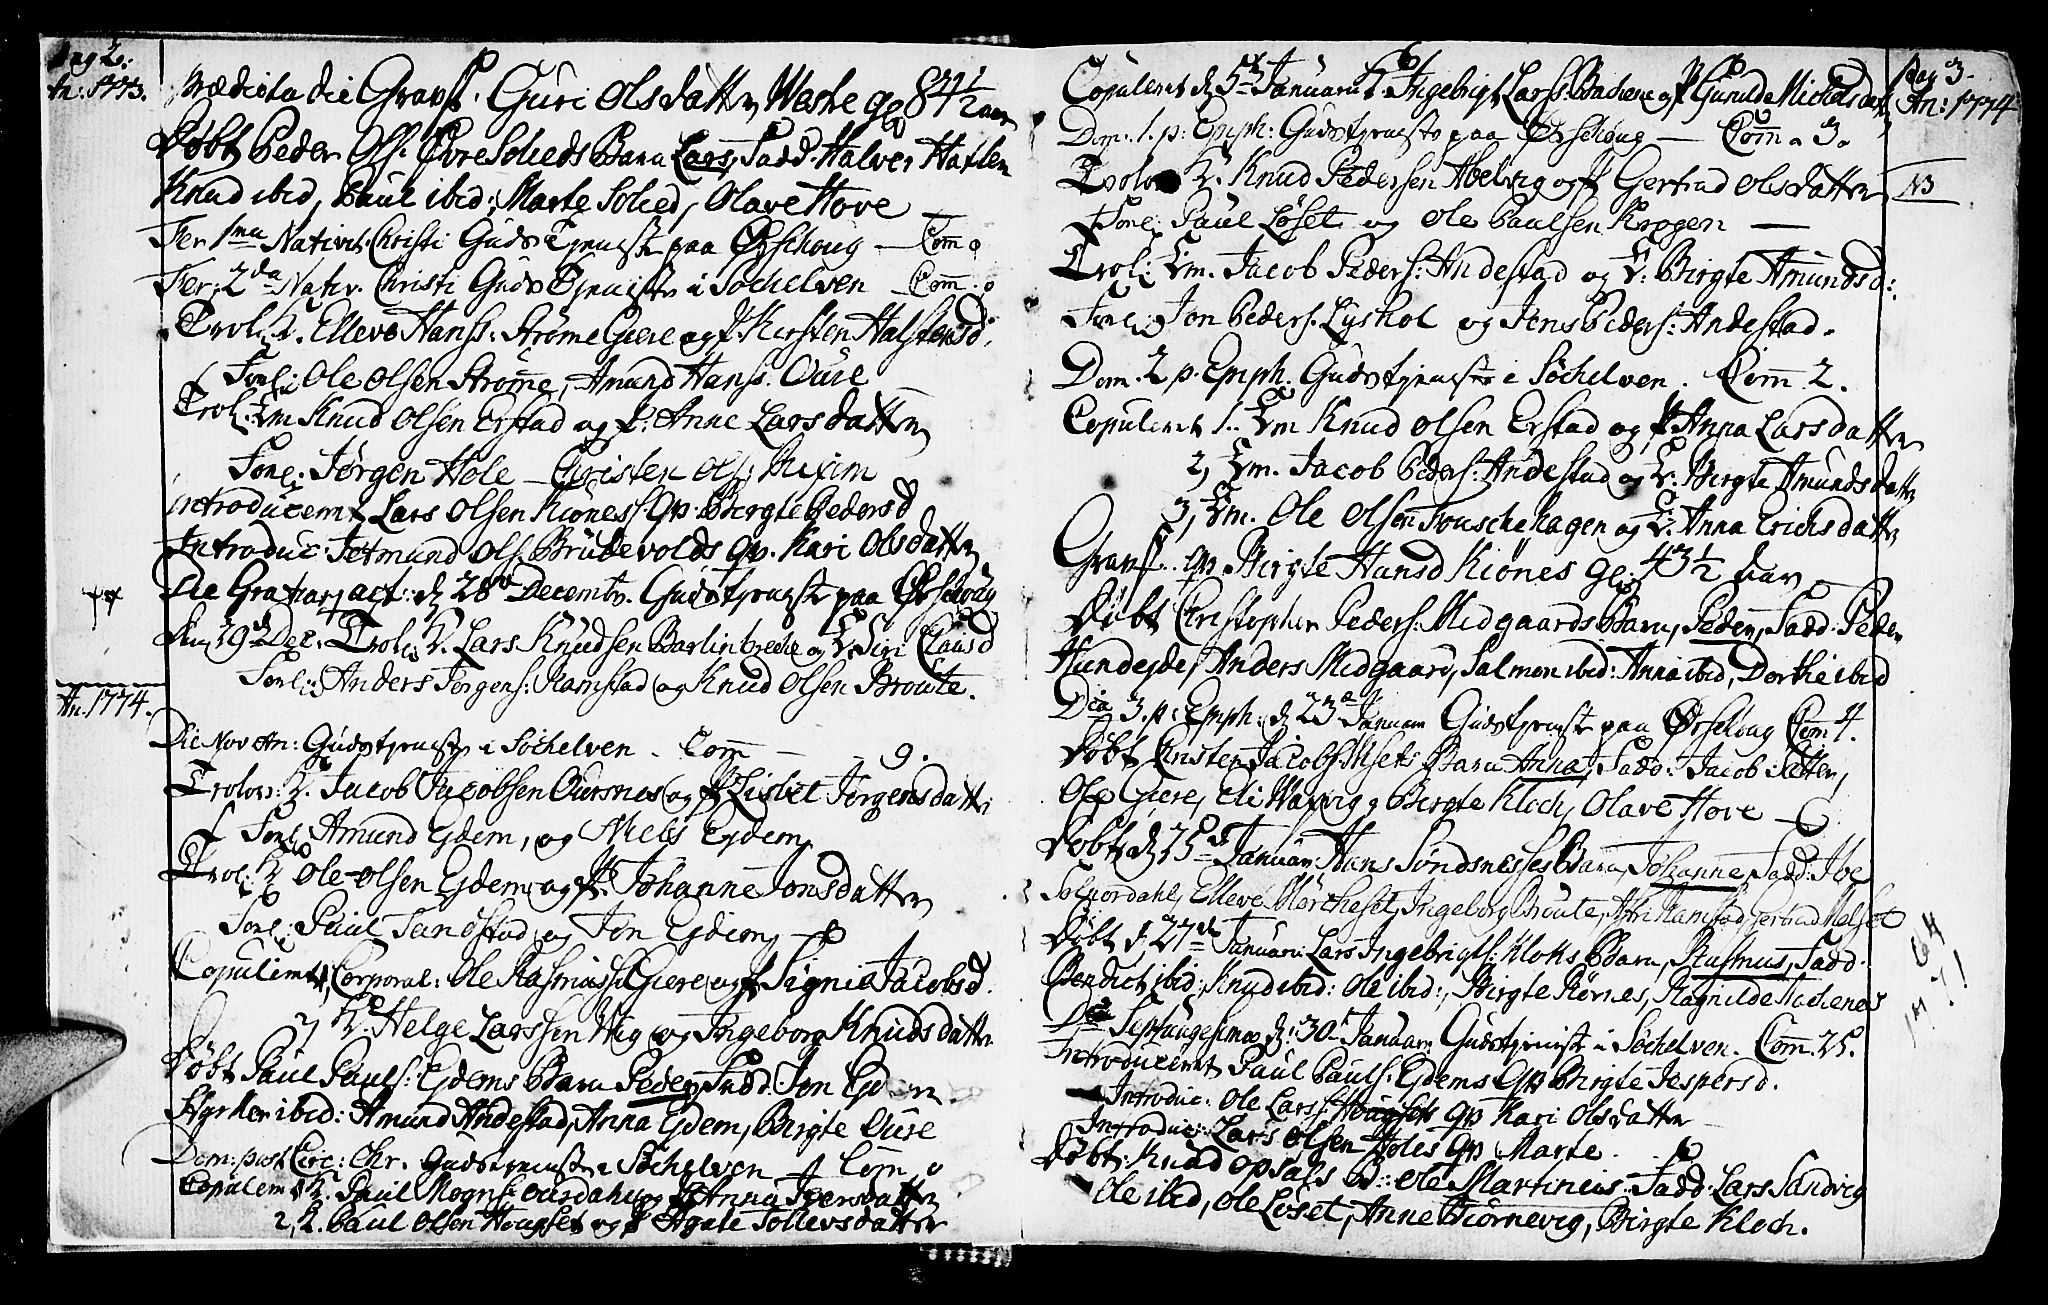 Pag 2.
An: 1773.
Prædicta die Gravf. Guri Olsdatter Weste gl 84 1/2 aar
Døbt Peder Ols. Øvre Solieds Barn Lars, Fadd. Halver Hatlen
Knud ibid, Paul ibid, Marte Solied, Olave Hove
Fer 1ma Nativit. Christi Guds Tjeneste paa Ørschoug — Com 0
Fer. 2da Nativ. Christi Guds Tjeneste i Søchelven — Com. 0
Trol: K. Elleve Hanss: Strøme Giere og P. Kirsten Halstensd.
Forl: Ole Olsen Strøme, Amund Hanss. Oure
Trol: Em Knud Olsen Erstad og P. Anne Larsdatter
Forl: Jørgen Hole — Christen Ols:
introduceret Lars Olsen Kiøness Qv. Birgte Pedersd
Introduc: Jetmund Ols. Brudevolds Qv. Kari Olsdatter
Die Gratiar. act: d. 28 Decembr. Gudstjeneste paa Ørschoug
29 Dec. Trol: K. Lars Knudsen Barlinbreche og E. Siri Clausd
Forl: Anders Jørgens: Ramstad og Knud Olsen Broute.
An. 1774.
Die Nov An: Gudstjeneste i Søchelven. Com — 9.
Trolov: K. Jacob Jacobsen Oursnes og P Lisbet Jørgensdatter
Forl. Amund Ejdem, og Niels Ejdem
Trol: K Ole Olsen Ejdem og P. Johanne Jonsdatter
Forl: Paul Tandstad og Jon Ejdem
Copuleret, Corporal: Ole Rasmuss: Giere og P Signie Jacobsd.
2, K. Helge Larssen Wig og Ingeborg Knudsdatter
Døbt Paul Pauls: Ejdems Barn Peder, Fadd: Jon Ejdem
ibid: Amund Andestad, Anna Ejdem, Birgte Oure
Dom: post Circ: Chr. Gudstjeneste i Søchelven Com 0
Copuleret K. Paul Mogns: Ourdahl og P Anna Iversdatter
2, K. Paul Olsen Hougset og P Agate Tollevsdatter
Pag 3.
An: 1774
Copuleret d. 5te Januarii K Ingebrigt Larss: Bachene og P Gunilde Michelsdatter
Dom. 1. p: Epiph: Gudstjeneste paa Ørschoug — Com. 3.
Trolov K. Knud Pedersen Abelvig og P Gertrud Olsdatter
NB
Forl: Paul Løset og Ole Paulsen Krogen —
Trol: Em. Jacob Peders: Andestad og E: Birgte Amundsd:
Forl: Jon Peders. Lyshol og Jens Peders: Andestad.
Dom. 2 p. Epiph. Gudstjeneste i Søchelven. Com 2.
Copuleret 1. Em Knud Olsen Erstad og P Anna Larsdatter
2, Em. Jacob Peders: Andestad og E. Birgte Amundsdatter
3, Em. Ole Olsen og E. Anna Erichsdatter
Gravf. Qv. Birgte Hansd Kiønes gl: 43 1/2 aar
Døbt Christopher Peders: Midgaards Barn, Peder, Fadd: Peder
Hundejde, Anders Midgaard, Salmon ibid: Anna ibid, Dorthe ibid
Dca 3. p: Epiph: d 23de Januarii Gudstjeneste paa Ørschoug Com 4.
Døbt Christen Jacobs: Barn Anna, Fadd: Jacob Sætter,
Ole Giere, Eli Waxvig, Birgte Kloch, Olave Hove —
Døbt d 25de Januarii Hans Søndsnesses Barn, Johanne, Fadd: Ibe
Solnordahl, Elleve Mørcheset, Ingeborg Broute, Ramstad, Gertrud Melset
Døbt d. 27de Januarii Lars Ingebrigts: Kloks Barn, Rasmus, Fadd:
Bendict ibid, Knud ibid: Ole ibid:, Birgte Rørnes, Ragnilde
64
71
Dca Septuagesima d: 30te Januarii Gudstjeneste i Søchelven. Com. 25.
Introduceret Paul Pauls: Ejdems Qv Birgte Jespersd.
Introduc. Ole Larss: Hougsets Qv Kari Olsdatter
Introduc: Lars Olsen Holes Qv Marte.
Døbt: Knud Opsahls B: Ole Martinus. Fadd. Lars Sandvig
Ole ibid, Ole Løset, Anne Biørnevig, Birgte Kloch.